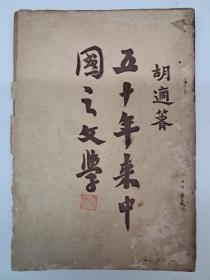 胡適著
五十年來中
國之文學